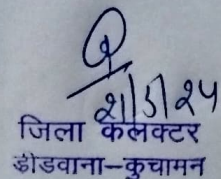 21/5/24
जिला कलक्टर
डीडवाना–कुचामन